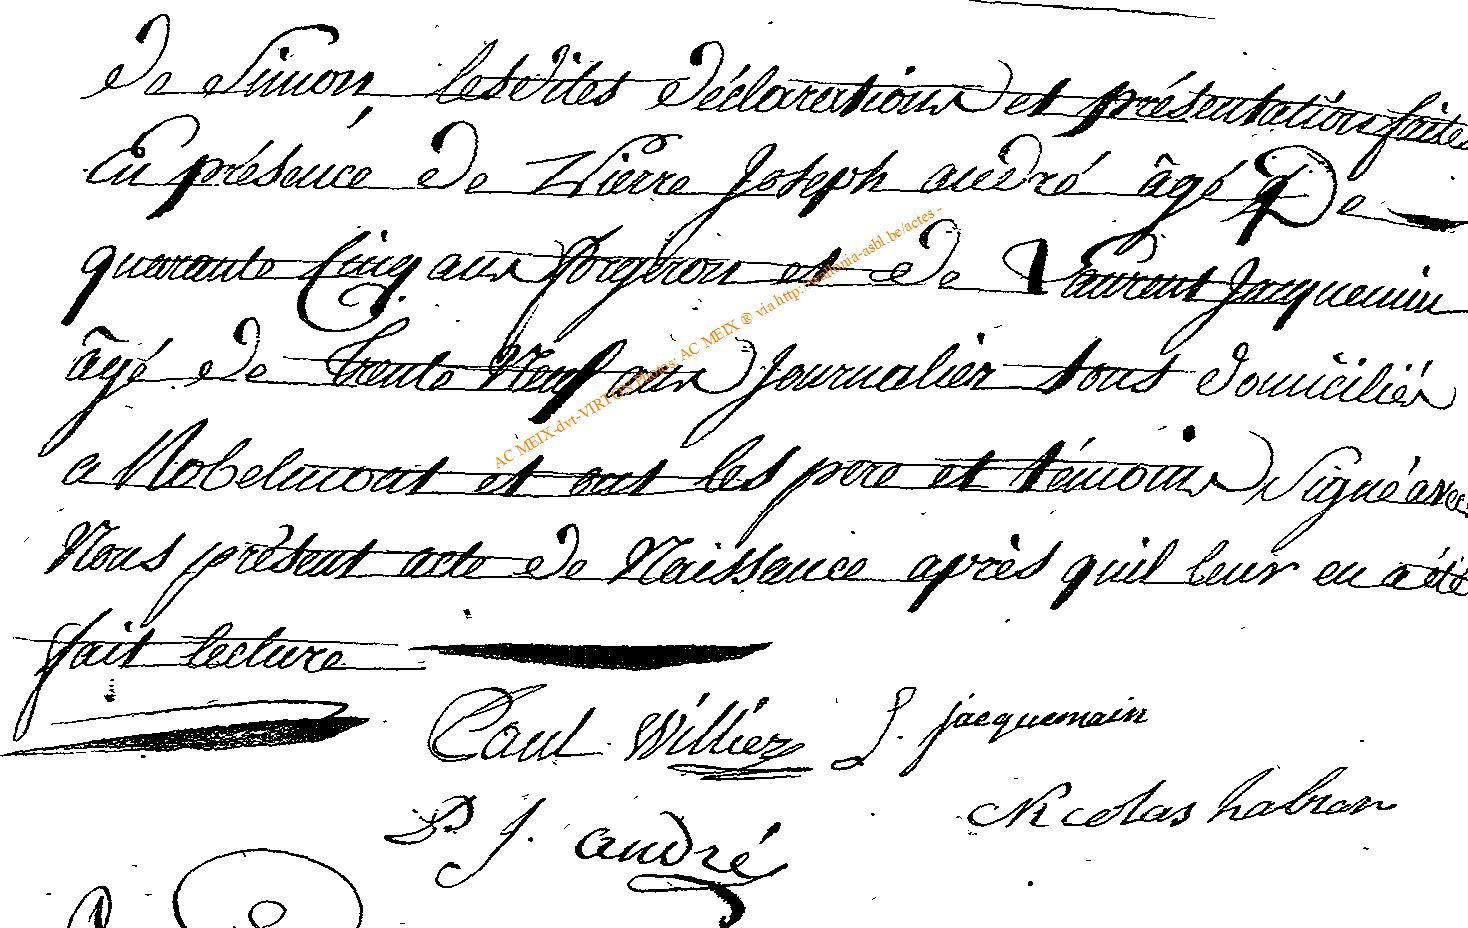 de Simon, lesdites déclarations et présentations faites
En présence de Pierre Joseph andré âgé De
quarante Cinq ans forgeron et de Laurent Jacquemin
âgé de trente Neuf ans Journalier tous domiciliés
a Robelmont et ont les pere et témoins Signé avec
Nous présent acte de Naissance après quil leur en a été
fait lecture
Paul Williez L. jacquemain
P. J. andré Nicolas habran
AC MEIX-dvt-VIRTON AC MEIX ® via http: -asbl.be/actes -